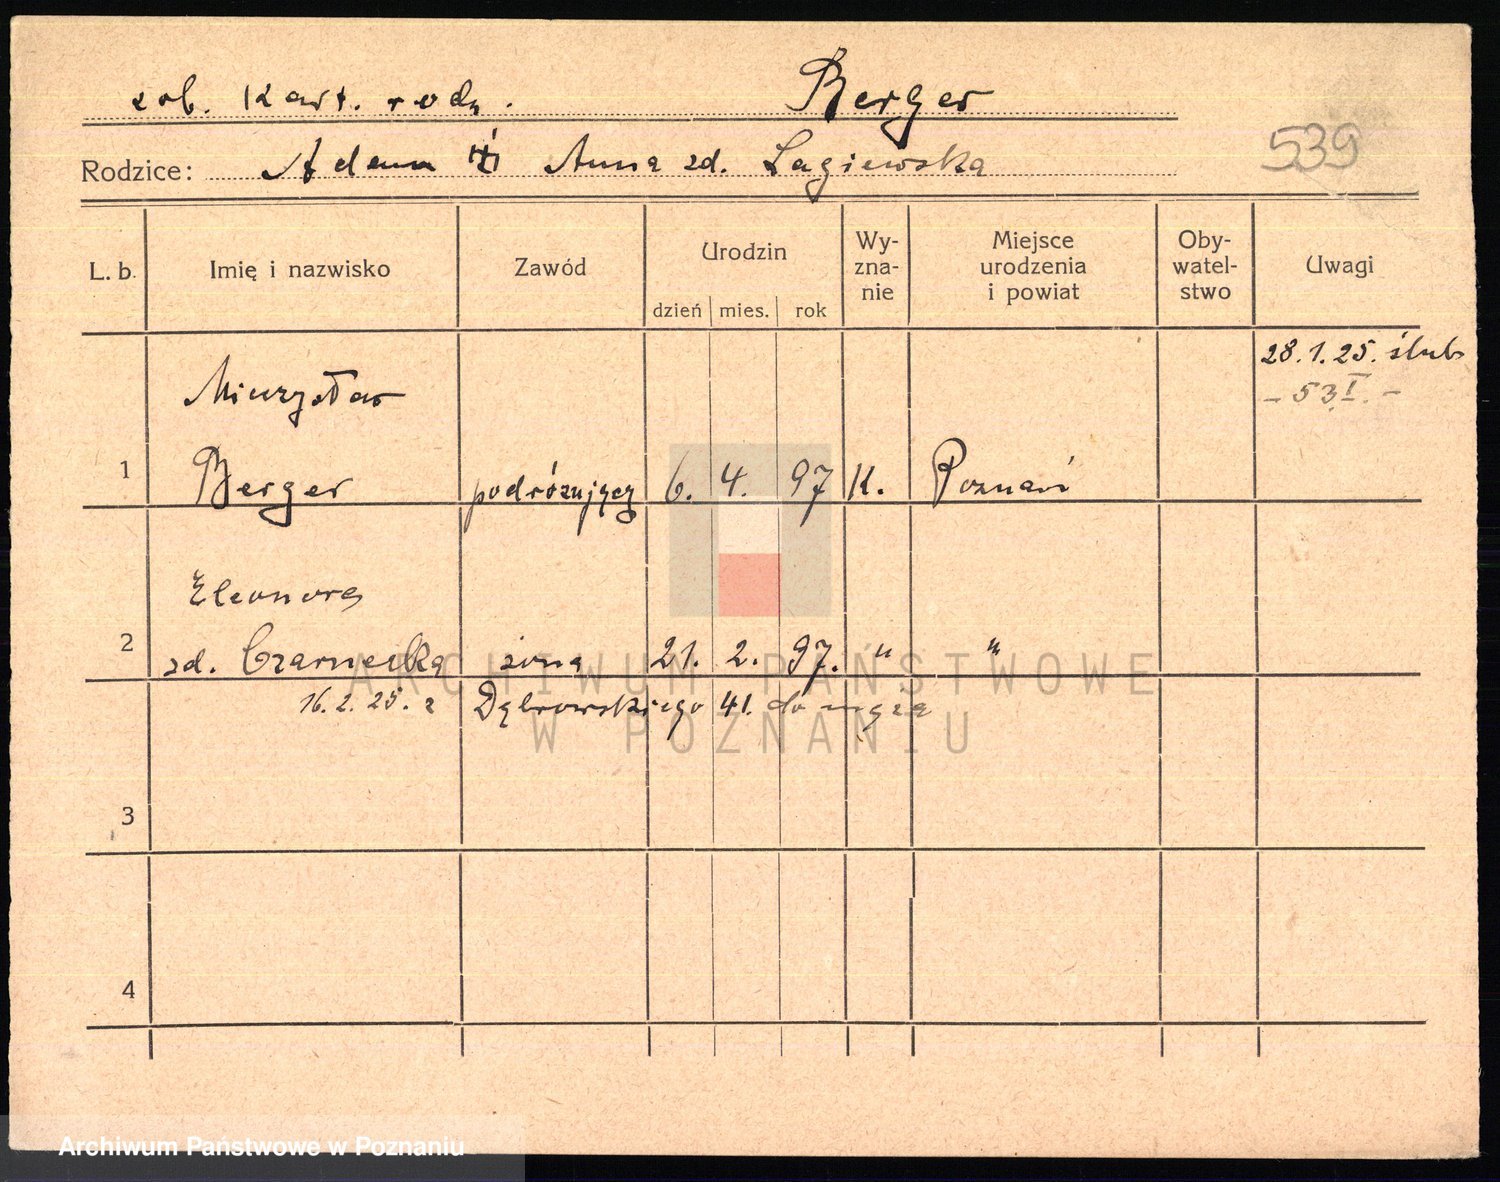 zob. Kart. rodz. Berger
539
Rodzice: Adam i Anna zd. Łagiewska
L. b. Imię i nazwisko Zawód Urodzin dzień mies. rok Wy-zna-nie Miejsce urodzenia i powiat Oby-watel-stwo Uwagi
28.1.25. ślub
- 53 I. -
Mieczysław
1 Berger podróżujący 6. 4. 97 K. Poznań
Eleonora
2 zd. Czarnecka żona 21. 2. 97. " "
16.2.25. z Dąbrowskiego 41. do męża
3
4
ARCHIWUM PAŃSTWOWE
W POZNANIU
Archiwum Państwowe w Poznaniu